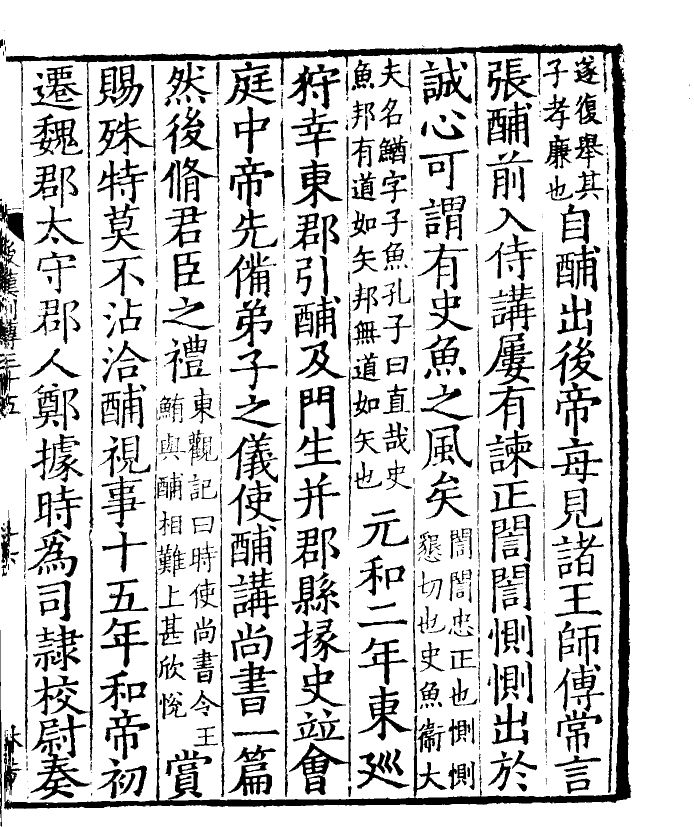 遂復舉其子孝廉也自酺出後帝每見諸王師傅常言
張酺前入侍講屢有諫正誾誾惻惻出於
誠心可謂有史魚之風矣誾誾忠正也惻惻懇切也史魚衞大
夫名鰌字子魚孔子曰直哉史魚邦有道如矢邦無道如矢也元和二年東廵
狩幸東郡引酺及門生并郡縣掾史竝會
庭中帝先備弟子之儀使酺講尚書一篇
然後脩君臣之禮東觀記曰時使尚書令王鮪與酺相難上甚欣恱賞
賜殊特莫不沾洽酺視事十五年和帝初
遷魏郡太守郡人鄭據時爲司隷校尉奏